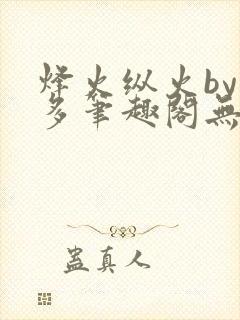 烽火纵火by
多笔趣阁無
蛊真人